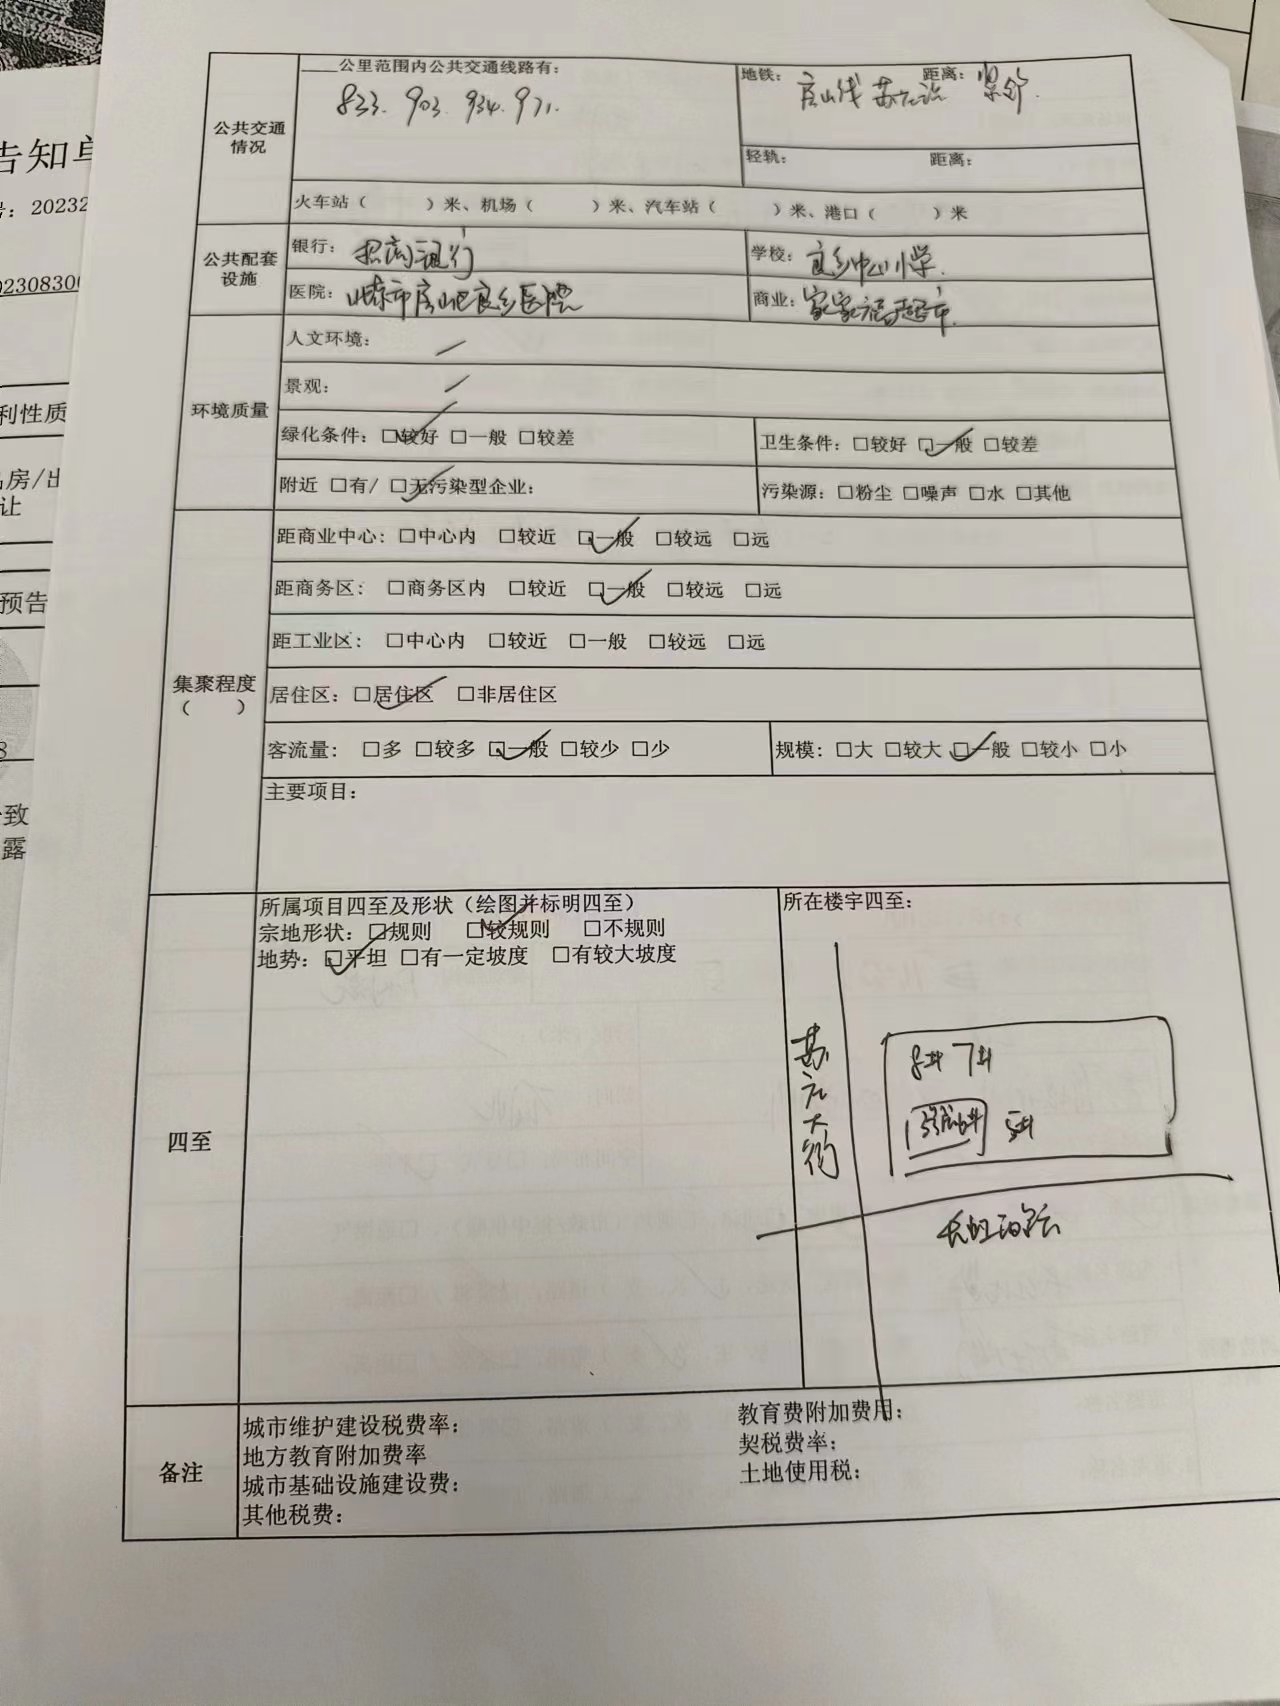 告知单
号: 20232
02308300
利性质
品房/出
让
预告
8
致
露
公共交通
情况
____公里范围内公共交通线路有:
833. 903. 934. 971.
地铁: 房山线 苏庄站 距离: 紧邻.
轻轨: 距离:
火车站（ ）米、机场（ ）米、汽车站（ ）米、港口（ ）米
公共配套
设施
银行: 招商银行
学校: 良乡中心小学.
医院: 北京市房山区良乡医院
商业: 家家福超市.
环境质量
人文环境: /
景观: /
绿化条件: ☑较好 □一般 □较差
卫生条件: □较好 ☑一般 □较差
附近 □有/ ☑无污染型企业:
污染源: □粉尘 □噪声 □水 □其他
集聚程度
（ ）
距商业中心: □中心内 □较近 ☑一般 □较远 □远
距商务区: □商务区内 □较近 ☑一般 □较远 □远
距工业区: □中心内 □较近 □一般 □较远 □远
居住区: ☑居住区 □非居住区
客流量: □多 □较多 ☑一般 □较少 □少
规模: □大 □较大 ☑一般 □较小 □小
主要项目:
四至
所属项目四至及形状（绘图并标明四至）
宗地形状: □规则 ☑较规则 □不规则
地势: ☑平坦 □有一定坡度 □有较大坡度
所在楼宇四至:
苏庄大街
8# 7#
6# 5#
备注
城市维护建设税费率:
教育费附加费用:
地方教育附加费率
契税费率:
城市基础设施建设费:
土地使用税:
其他税费: